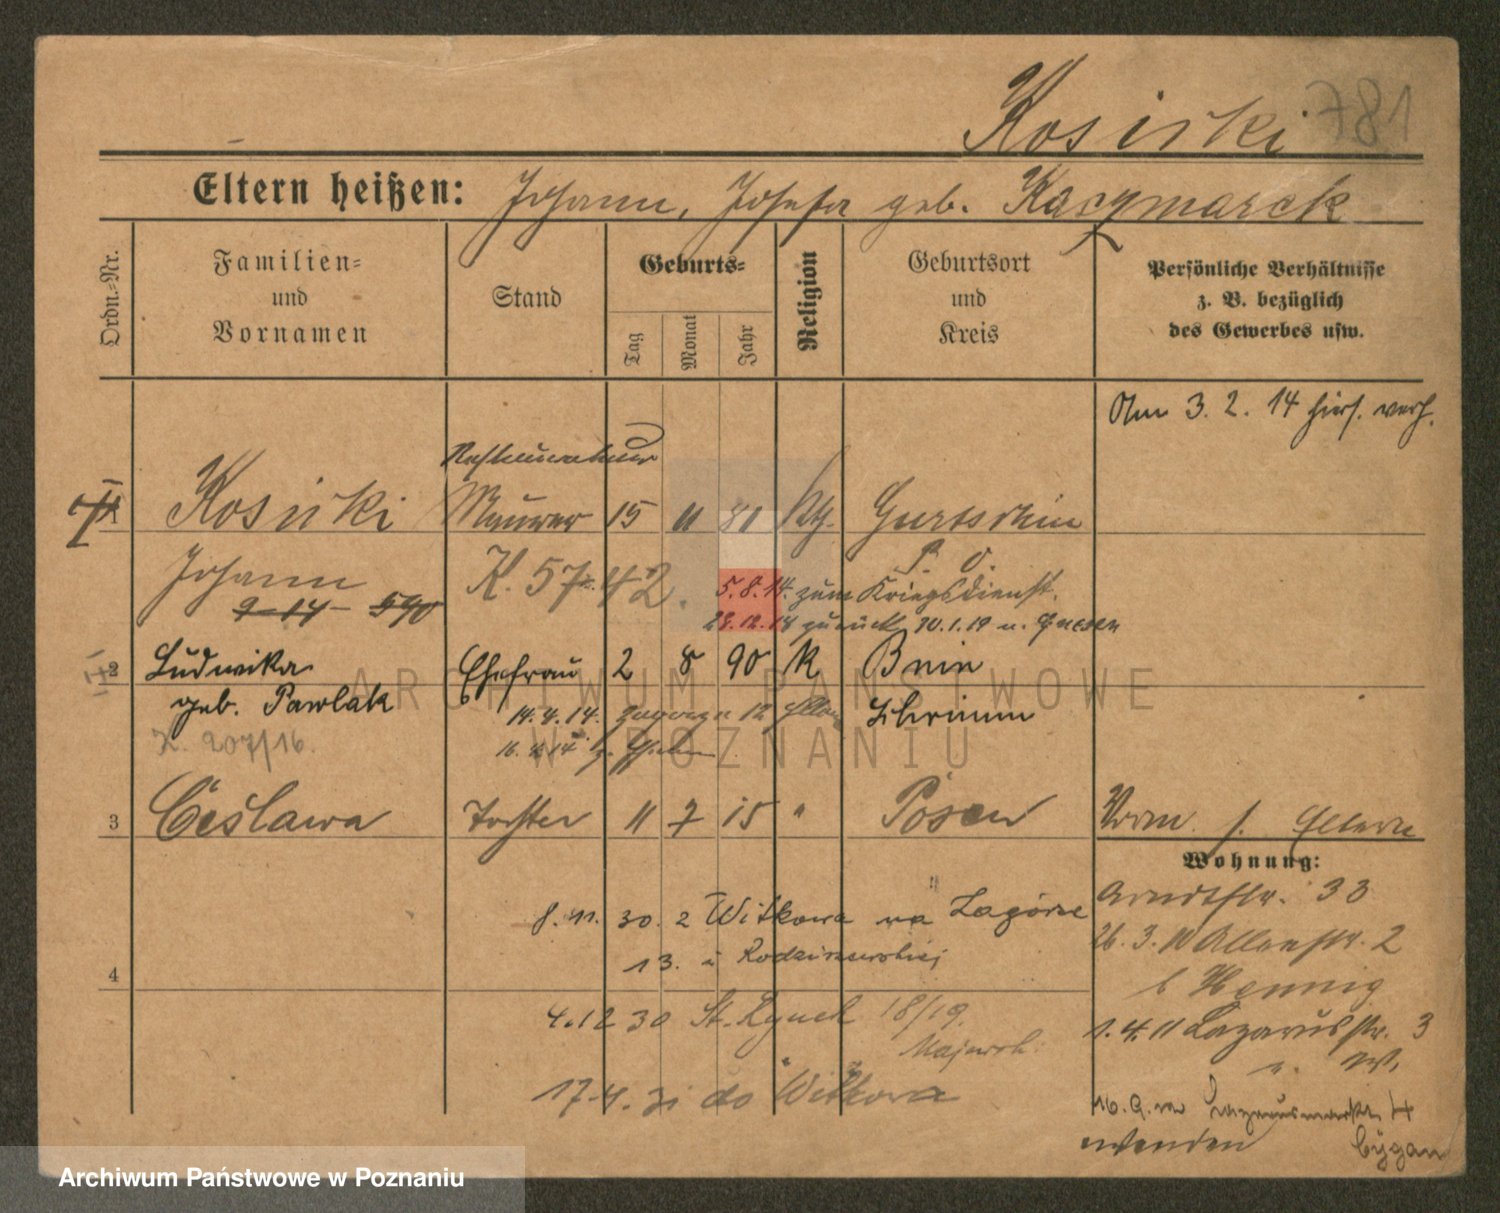 Kosicki 781
Eltern heißen: Johann, Josefa geb. Kaczmarek
Ordn.-Nr.
Familien-
und
Vornamen
Stand
Geburts-
Tag
Monat
Jahr
Religion
Geburtsort
und
Kreis
Persönliche Verhältnisse
z. B. bezüglich
des Gewerbes usw.
Am 3. 2. 14 hier verh.
Restaurateur
1 Kosicki Maurer 15 11 81 Gurtschin
P. O.
Johann K. 57 42. 5.8.14. zum Kriegsdienst.
9-14- 590
28.12.18 zurück 10.1.19 n. Gnesen
2 Ludwika Ehefrau 2 8 90 K Bnin
geb. Pawlak 14.4.14. Schrimm
K. 207/16.
16. 4. 14
3 Česlawa Tochter 11 7 15 " Posen Verm. s. Eltern
Wohnung:
Arndtstr. 33
8. 11. 30. 2 Witkowa na Zagórze
13. u Rodziewiczowskiej
26. 3. 10 2
b Hennig
4
4.12 30 St. Rynek 18/19.
Majewsk.
1. 4. 11 Lazarusstr. 3
17.4. 31 do Witkowa
16. 9. Lazarusmarkt 4
wenden Cygan
ARCHIWUM PAŃSTWOWE
W POZNANIU
Archiwum Państwowe w Poznaniu